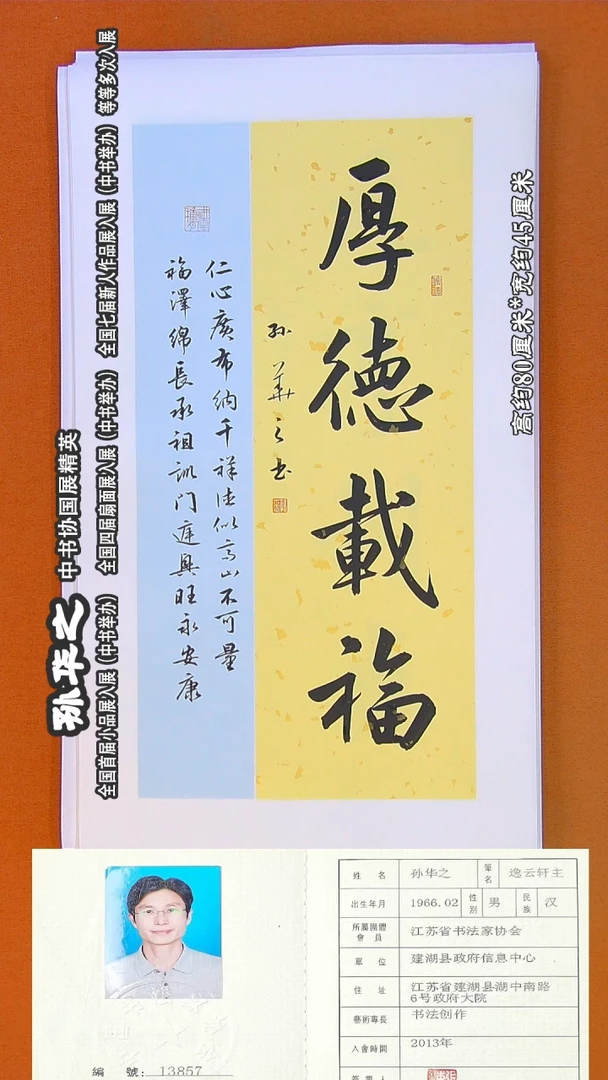 厚德載福
孙華之书
仁心廣布纳千祥德似高山不可量
福澤绵長承祖训门庭興旺永安康
高约80厘米*宽约45厘米
孙华之 中书协国展精英
全国首届小品展入展（中书举办） 全国四届扇面展入展（中书举办） 全国七届新人作品展入展（中书举办） 等等多次入展
姓 名 孙华之 筆名 逸云轩主
出生年月 1966.02 性别 男 民族 汉
所屬團體會員 江苏省书法家协会
單 位 建湖县政府信息中心
住 址 江苏省建湖县湖中南路
6号政府大院
藝術專長 书法创作
入會時間 2013年
签發人
编 號: 13857